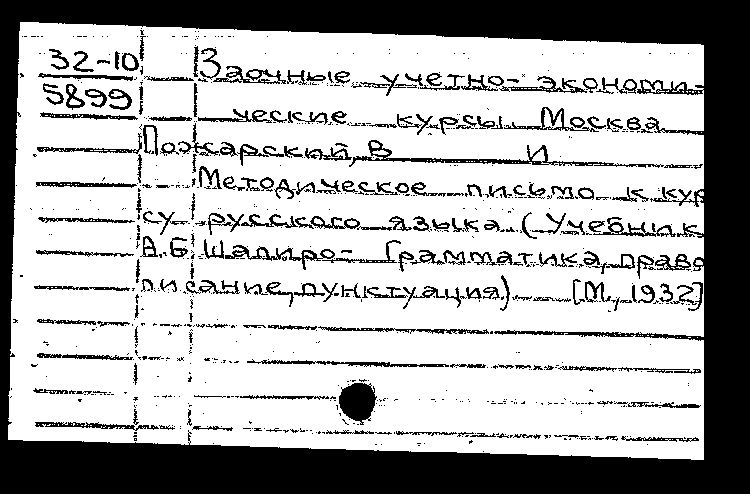 32-10 Заочные учетно-экономи-
5899 ческие курсы. Москва
Пожарский, В И
Методическое письмо к кур
су русского языка. (Учебник
А.Б Шапиро- Грамматика, право
писание, пунктуация) [М., 1932]